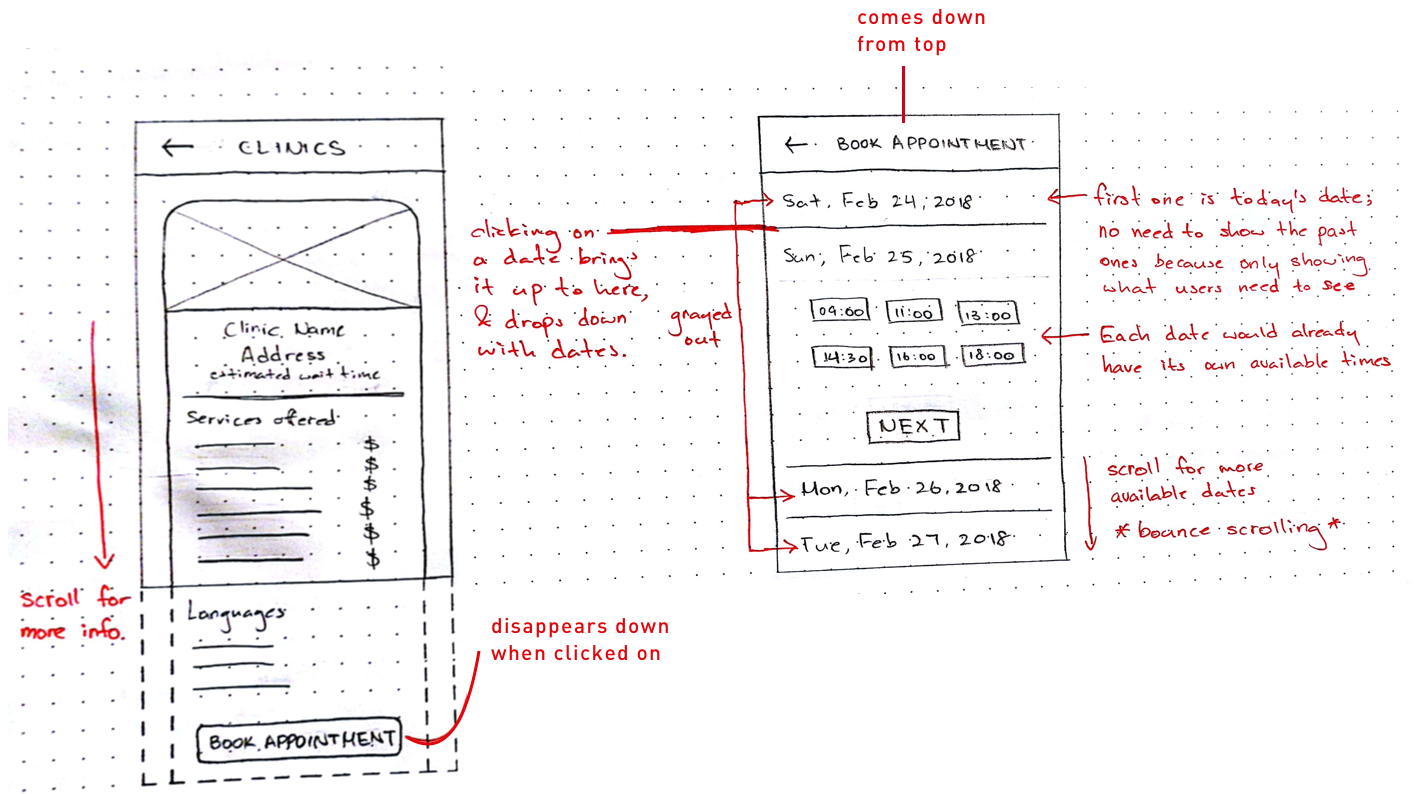 comes down
from top
← CLINICS
Clinic Name
Address
estimated wait time
Services offered
$
$
$
$
$
$
scroll for
more info.
Languages
BOOK APPOINTMENT
disappears down
when clicked on
clicking on
a date brings
it up to here,
& drops down
with dates.
grayed
out
← BOOK APPOINTMENT
Sat, Feb 24, 2018
Sun, Feb 25, 2018
09:00 11:00 13:00
14:30 16:00 18:00
NEXT
Mon, Feb 26, 2018
Tue, Feb 27, 2018
first one is today's date;
no need to show the past
ones because only showing
what users need to see
Each date would already
have its own available times
scroll for more
available dates
*bounce scrolling*